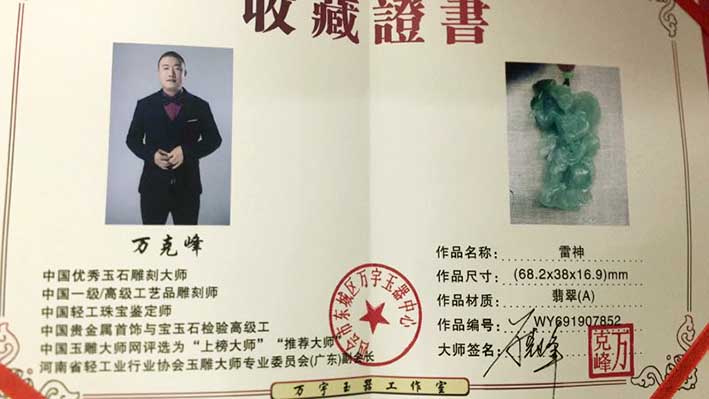 收藏證書
万克峰
中国优秀玉石雕刻大师
中国一级/高级工艺品雕刻师
中国轻工珠宝鉴定师
中国贵金属首饰与宝玉石检验高级工
中国玉雕大师网评选为“上榜大师”“推荐大师”
河南省轻工业行业协会玉雕大师专业委员会(广东)副会长
市东城区万宇玉器中心
作品名称: 雷神
作品尺寸: (68.2x38x16.9)mm
作品材质: 翡翠(A)
作品编号: WY691907852
大师签名: 万克峰
万克峰
万宇玉器工作室